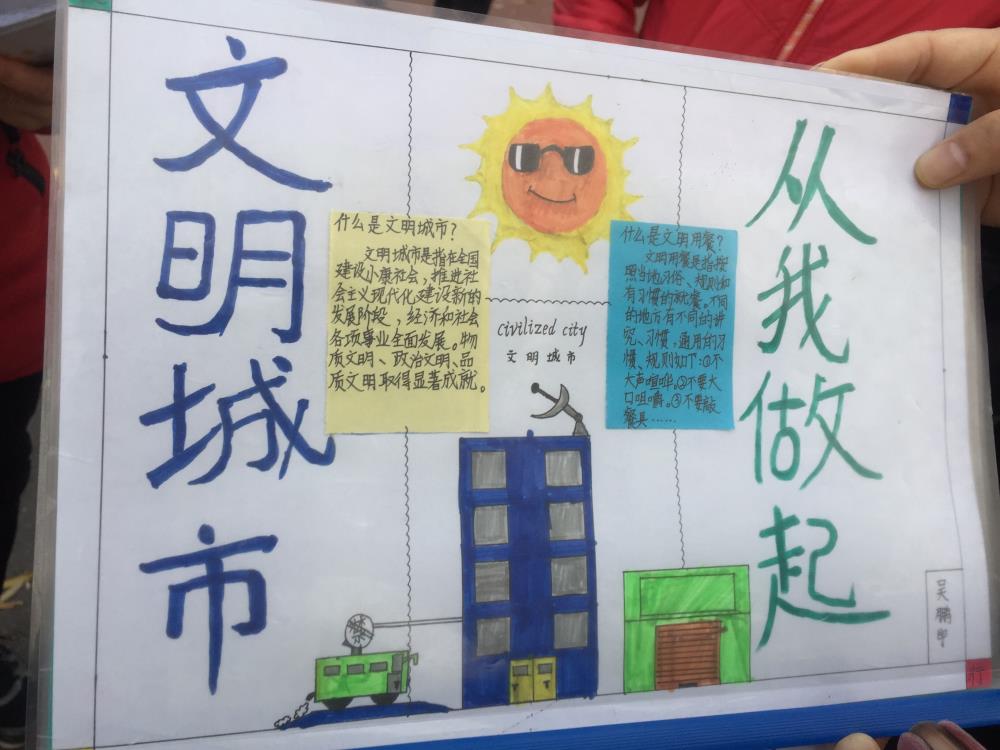 文明城市
什么是文明城市?
文明城市是指在全国
建设小康社会、推进社
会主义现代化建设新的
发展阶段,经济和社会
各项事业全面发展。物
质文明、政治文明、品
质文明取得显著成就。
civilized city
文明城市
什么是文明用餐?
文明用餐是指按
照当地习俗、规则和
有习惯的就餐。不同
的地方有不同的讲
究、习惯。通用的习
惯、规则如下:①不
大声喧哗。②不要大
口咀嚼。③不要敲
餐具……
从我做起
禁
吴鹏
行